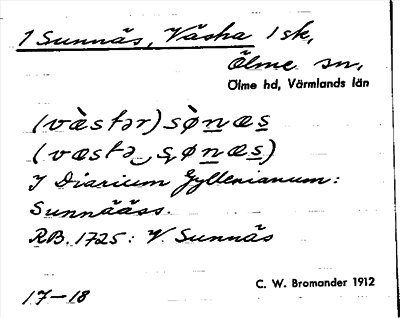 1 Sunnäs, Väsha 1 sk,
Ölme sn,
Ölme hd, Värmlands län
(vàstər) sònæs
(væstə sønæs)
I Diarium Gyllenianum:
Sunnääss.
RB. 1725: V. Sunnäs
C. W. Bromander 1912
17-18